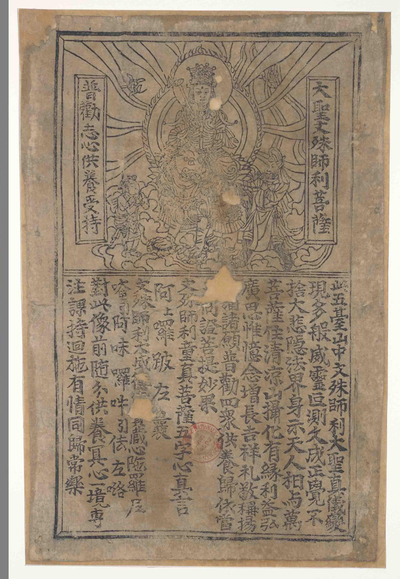 大聖文殊師利菩薩
普勸志心供養受持
此五臺山中文殊師利大聖真儀變
現多般威靈叵測久成正覺不
捨大悲隱法界身示天人相与萬
菩薩住清涼山攝化有緣利益弘
廣思惟憶念增長吉祥礼敬稱揚
諸願普勸四眾供養歸依當
同證菩提妙果
文殊師利童真菩薩五字心真言
阿上囉跛左曩
文殊師利大威德藏心陁羅尼
阿味囉吽引佉左咯
對此像前隨分供養冥心一境專
注課持迴施有情同歸常樂